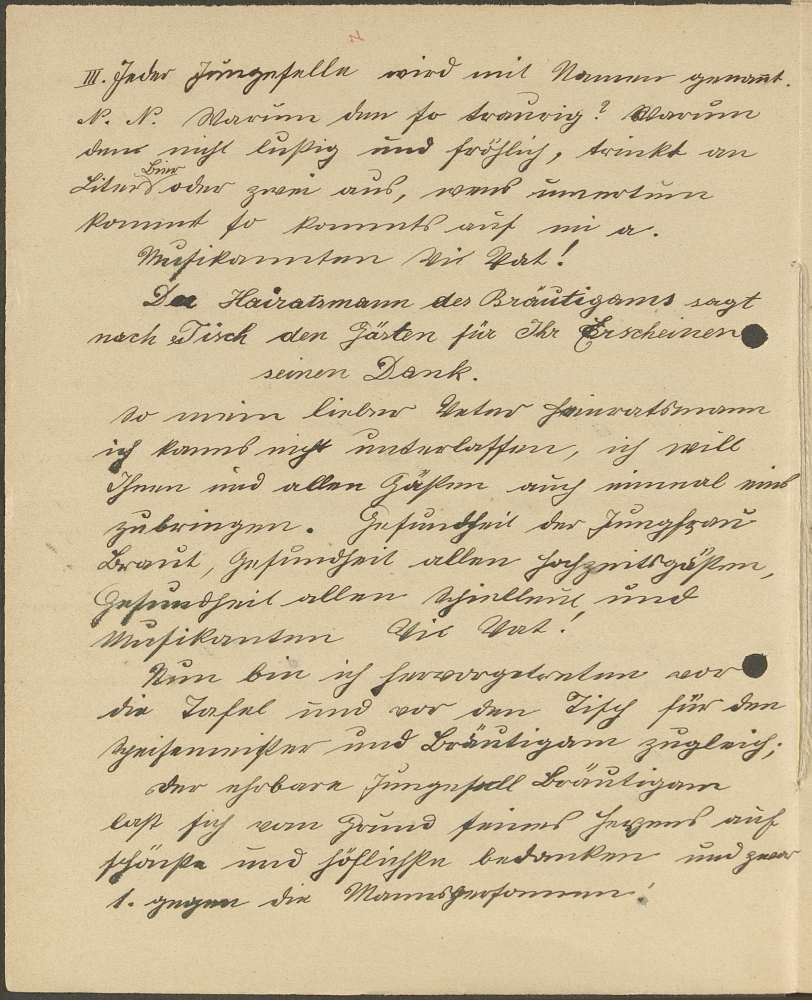 III. Jeder Jungeselle wird mit Namen genannt.
N. N. Warum den so traurig? Warum
den nicht lustig und fröhlich, trinkt an
Liter Bier oder zwei aus, wens umertum
kommt so kommts auf mi a.
Musikannten Vis Vat!
Der Hairatsmann des Bräutigams sagt
nach Tisch den Gästen für Ihr Erscheinen
seinen Dank.
So mein lieber Veter Heiratsmann
ich kanns nicht unterlassen, ich will
Ihnen und allen Gästen auch einmal eins
zubringen. Gesundheit der Jungfrau
Braut, Gesundheit allen Hochzeitsgästen,
Gesundheit allen Spielleut und
Musikanten Vis Vat!
Nun bin ich hervorgetreten vor
die Tafel und vor den Tisch für den
Speisemeister und Bräutigam zugleich;
Der ehrbare Jungesell Bräutigam
last sich vom Grund seines Herzens auf
schönste und höflichste bedanken und zwar
1. gegen die Mannspersonnen!